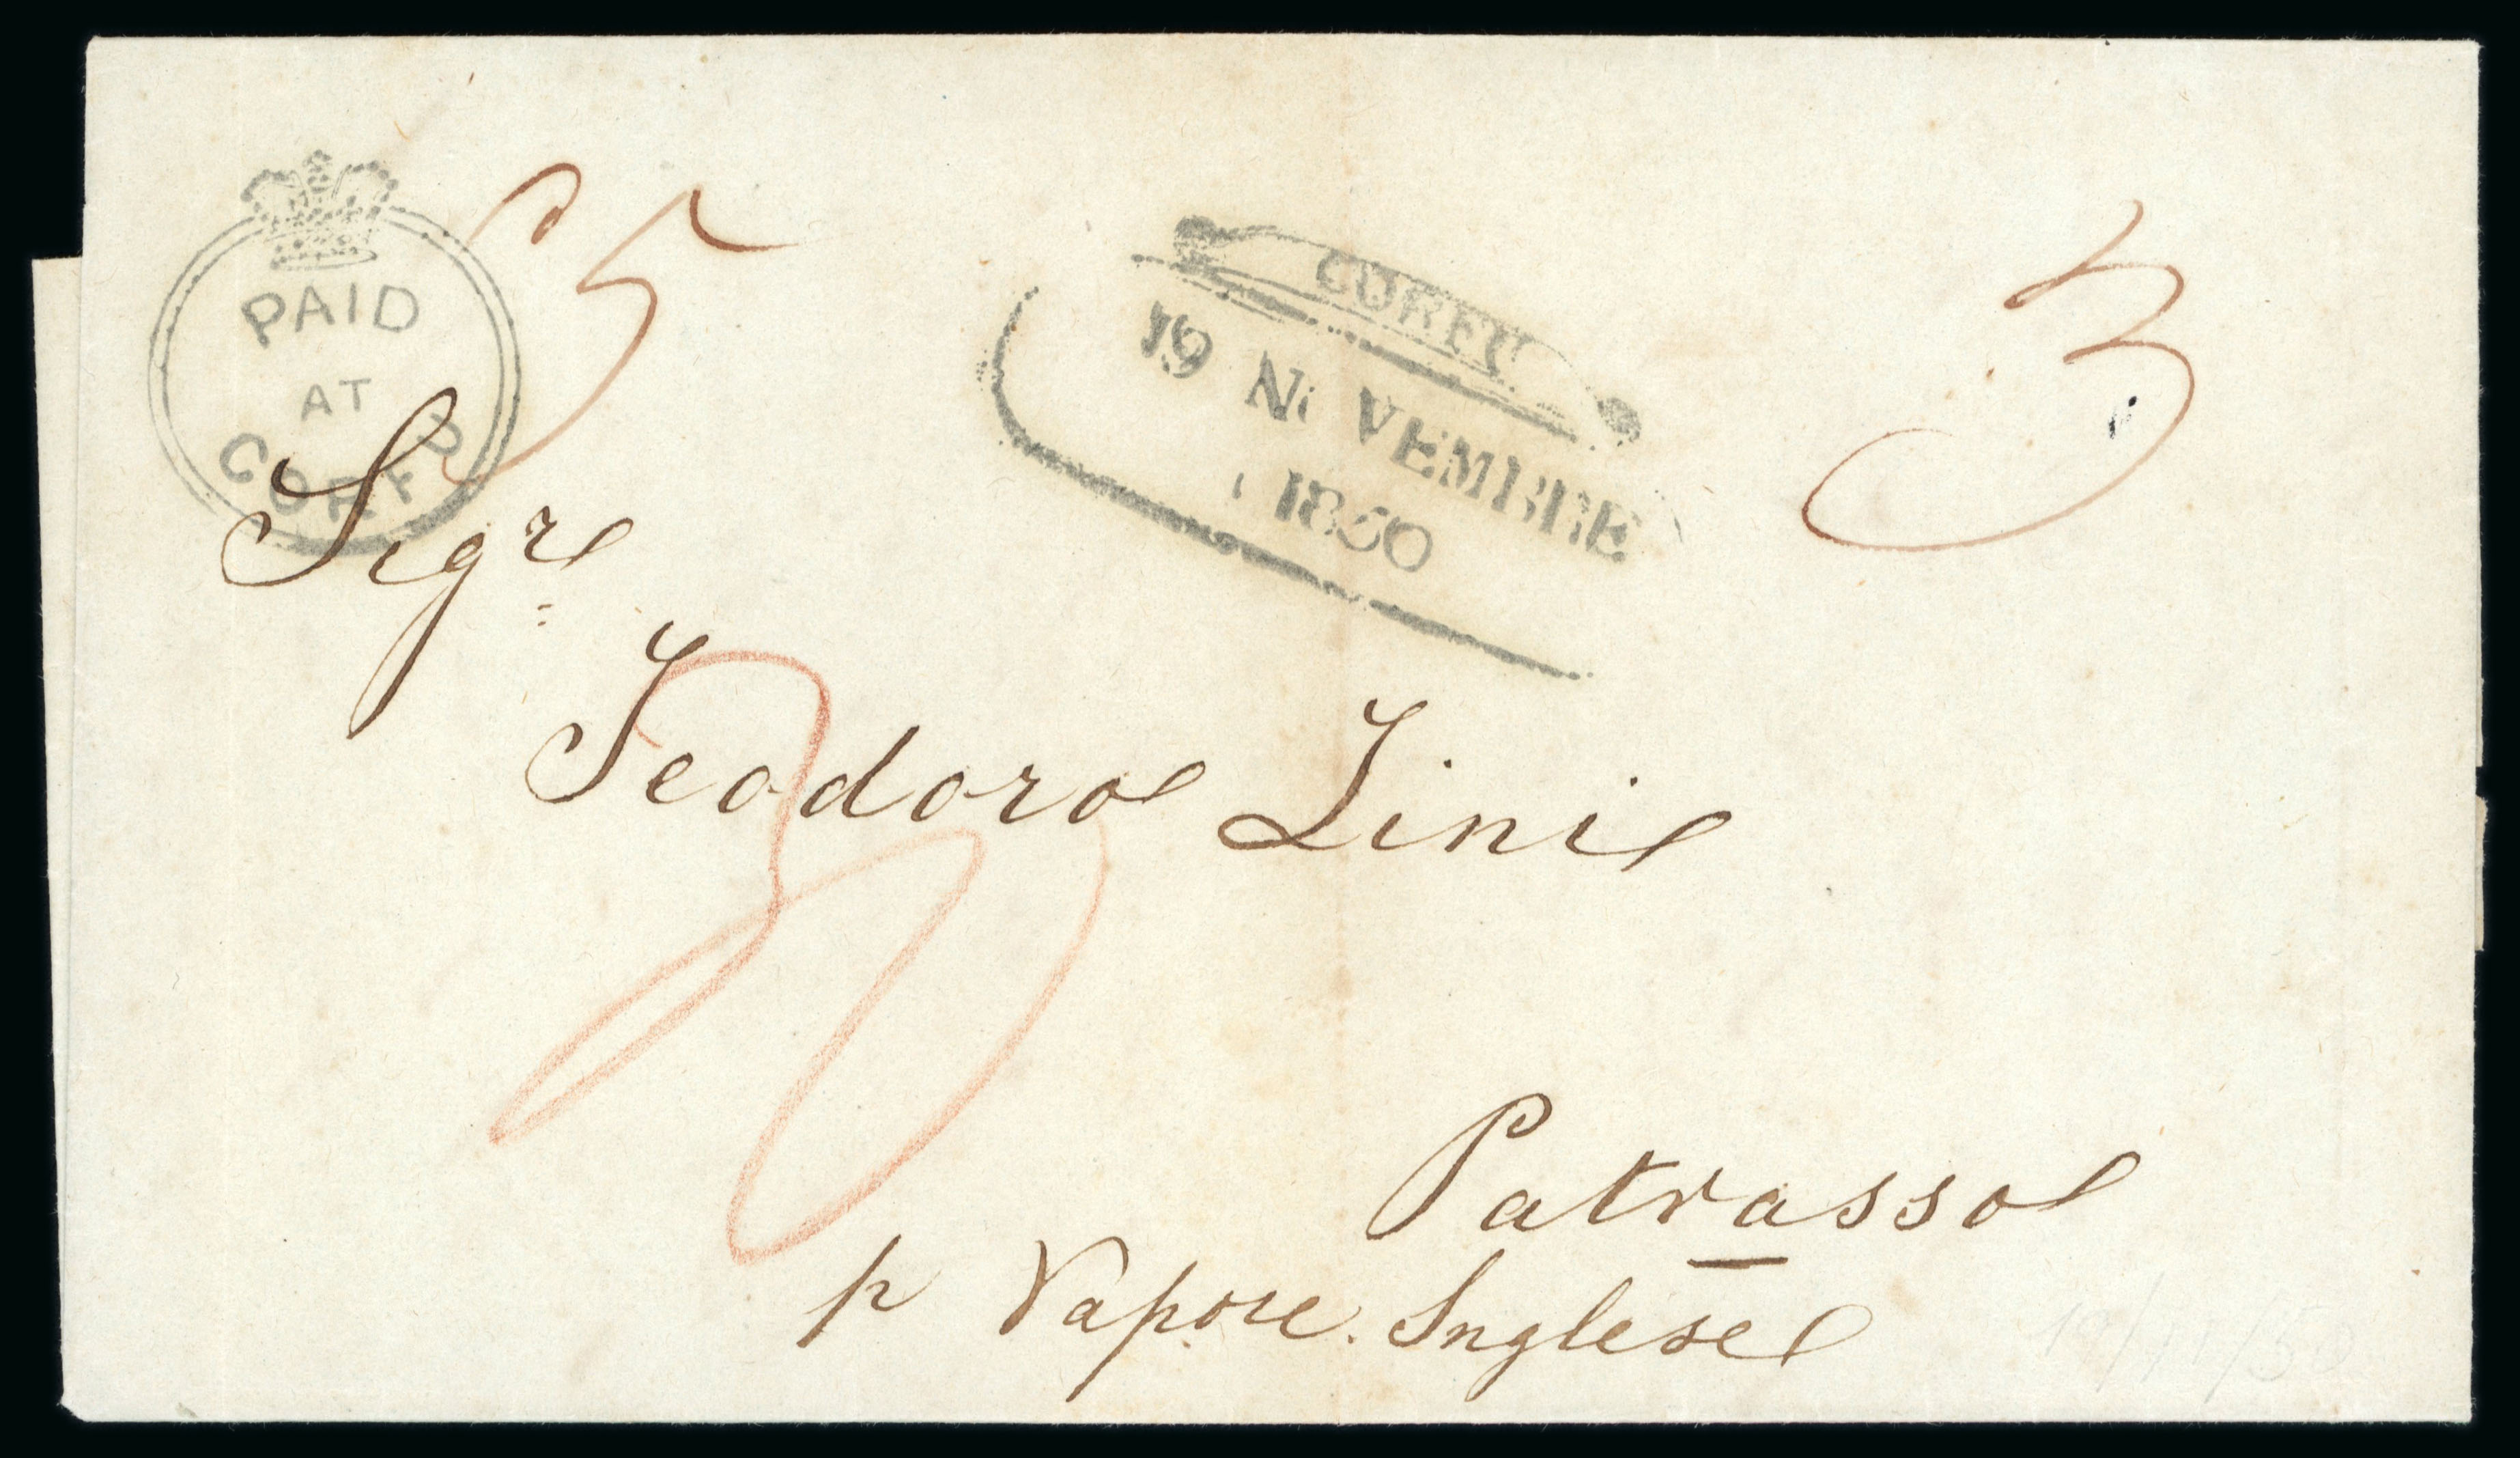 PAID
AT
CORFU
CORFU
19 NOVEMBRE
1850
3
Sigre
Teodoro Zini
30
Patrasso
p Vapore Inglese
19/11/50